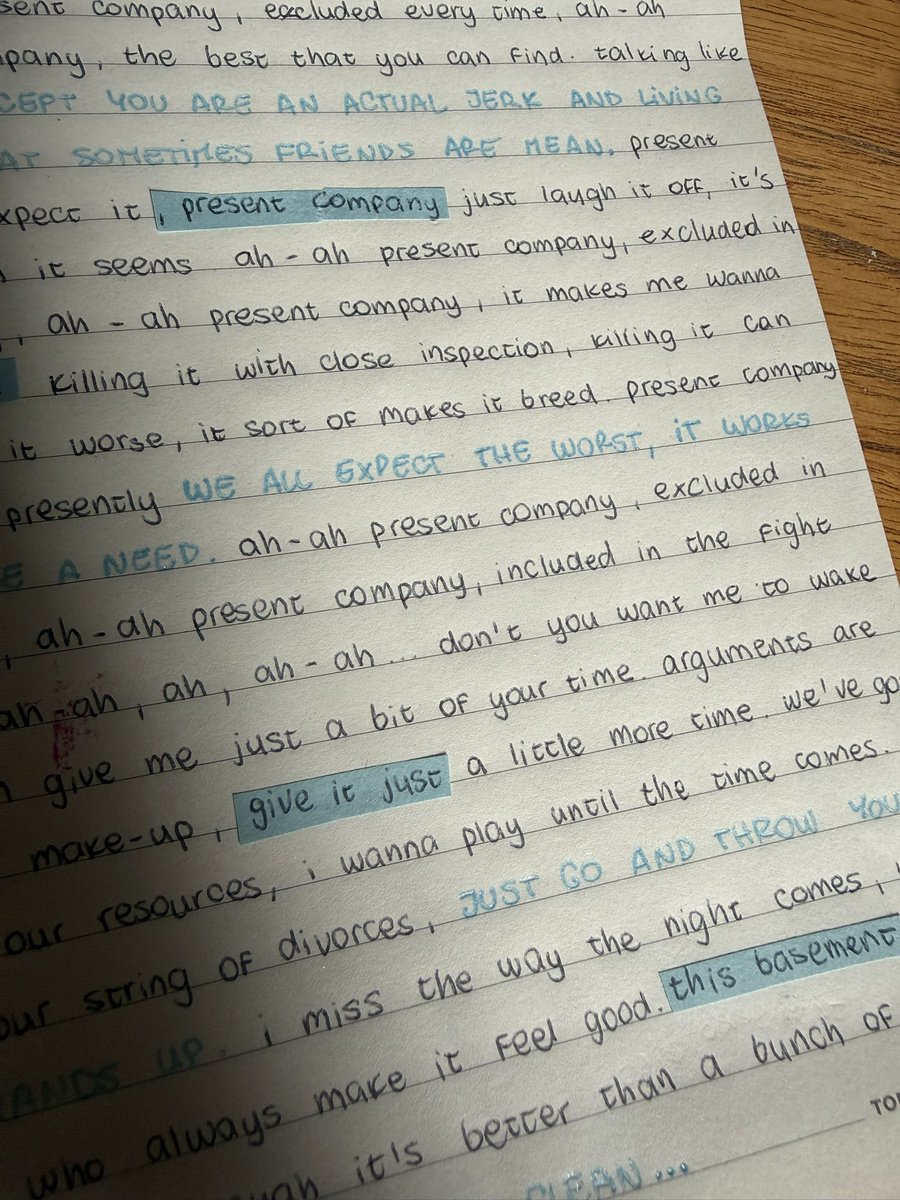 company, excluded every time, ah - ah
the best that you can find. talking like
YOU ARE AN ACTUAL JERK AND LIVING
SOMETIMES FRIENDS ARE MEAN. present
it, present company just laugh it off, it's
it seems ah - ah present company, excluded in
, ah - ah present company, it makes me wanna
killing it with close inspection, killing it can
it worse, it sort of makes it breed. present company
presently WE ALL EXPECT THE WORST, IT WORKS
A NEED. ah-ah present company, excluded in
, ah-ah present company, included in the fight
ah-ah, ah, ah-ah... don't you want me to wake
give me just a bit of your time. arguments are
make-up, give it just a little more time. we've go
our resources, i wanna play until the time comes.
our string of divorces, JUST GO AND THROW YOU
UP. i miss the way the night comes,
who always make it feel good. this basement
it's better than a bunch of
CLEAN...